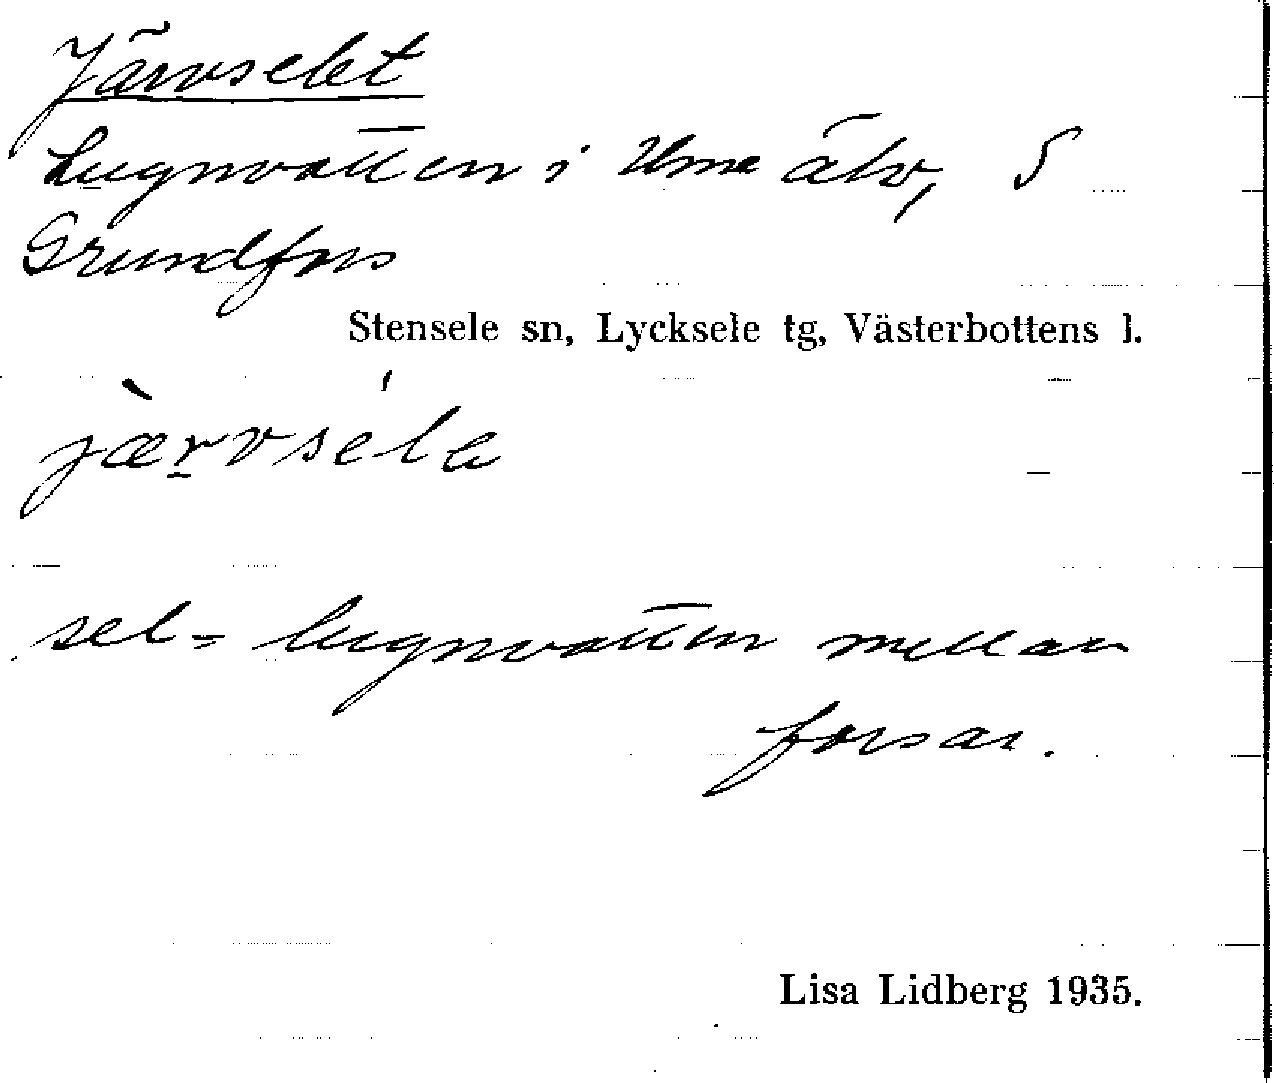 Järvselet
Lugnvatten i Ume älv, S
Grundfors
Stensele sn, Lycksele tg, Västerbottens l.
jæ̀rvséle
sel = lugnvatten mellan
forsar.
Lisa Lidberg 1935.